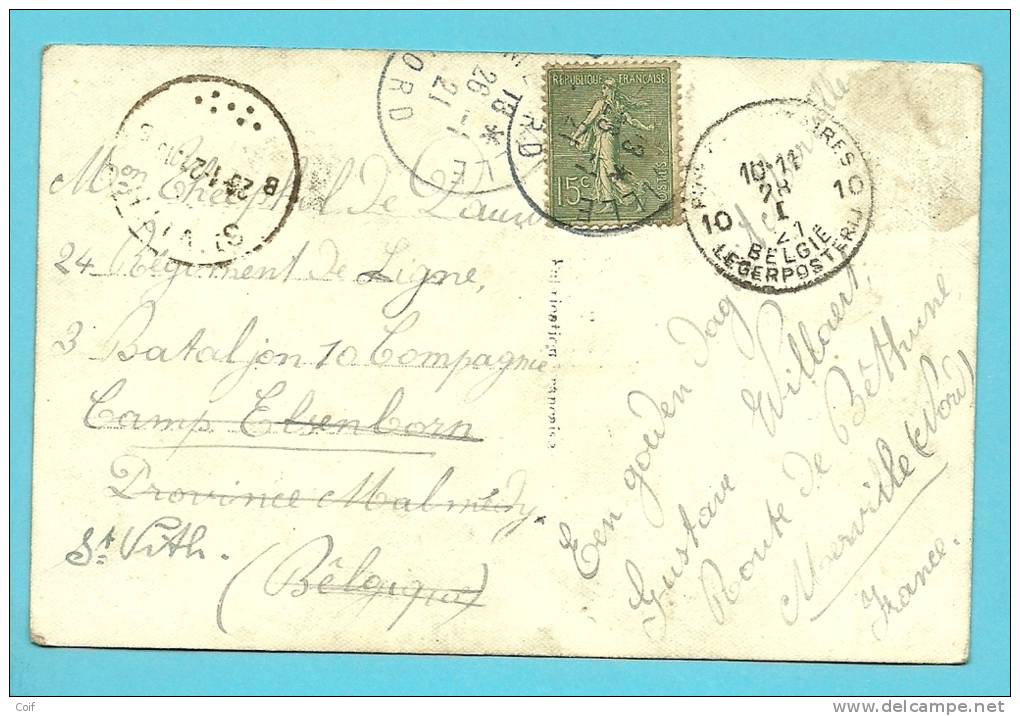 RÉPUBLIQUE FRANÇAISE
15c
POSTES
LLE
18 *
26 -1
21
NORD
ST VITH
10-11
28
I
21
10 10
BELGIË
LEGERPOSTERIJ
Mr Theophiel De
24 Régiment de Ligne,
3 Bataljon 10 Compagnie
Camp Elsenborn
Province Malmédy
St Vith.
(Bêlgique)
Een gouden dag
Gustave Willaert,
Route de Béthune
Merville (Nord)
France.
Coif
www.delcampe.net